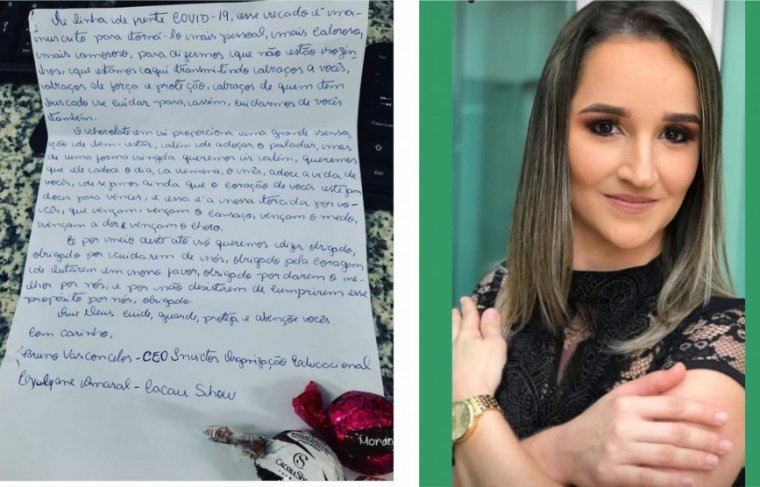 A linha de frente COVID-19, esse recado é ma-
nuscrito para torná-lo mais pessoal, mais caloroso,
mais amoroso, para dizermos que não estão sozin-
hos, que estamos aqui transmitindo abraços a vocês,
abraços de força e proteção, abraços de quem tem
buscado se cuidar para, assim, cuidarmos de vocês
também.
O chocolate em si proporciona uma grande sensa-
ção de bem-estar, além de adoçar o paladar, mas
de uma forma singela queremos ir além, queremos
que ele adoce o dia, a semana, o mês, adoce a vida de
vocês, desejamos ainda que o coração de vocês estejam
doces para vencer, e essa é a nossa torcida por vo-
cês, que vençam: vençam o cansaço, vençam o medo,
vençam a dor e vençam o choro.
E por meio deste ato só queremos dizer obrigado,
obrigado por cuidarem de nós, obrigado pela coragem
de lutarem em nosso favor, obrigado por darem o me-
lhor por nós, e por não desistirem de cumprirem esse
propósito por nós, obrigado.
Que Deus cuide, guarde, proteja e abençõe vocês.
Com carinho,
Bruno Vasconcelos - CEO Invictos Organização Educacional
Amaral - Cacau Show
CacauSh
Moran